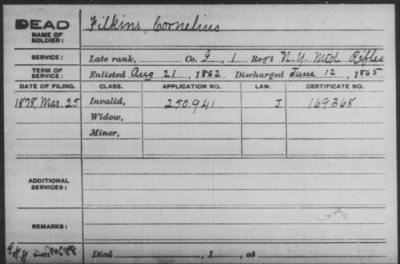 DEAD
NAME OF SOLDIER: Filkins, Cornelius
SERVICE: Late rank, Co. I, 1 Reg't N.Y. Mtd Rifles
TERM OF SERVICE: Enlisted Aug 21, 1862 Discharged June 12, 1865
DATE OF FILING. CLASS. APPLICATION NO. LAW. CERTIFICATE NO.
1878, Mar. 25 Invalid, 250.941 J 169368
Widow,
Minor,
ADDITIONAL SERVICES:
REMARKS:
Died , 1 , at